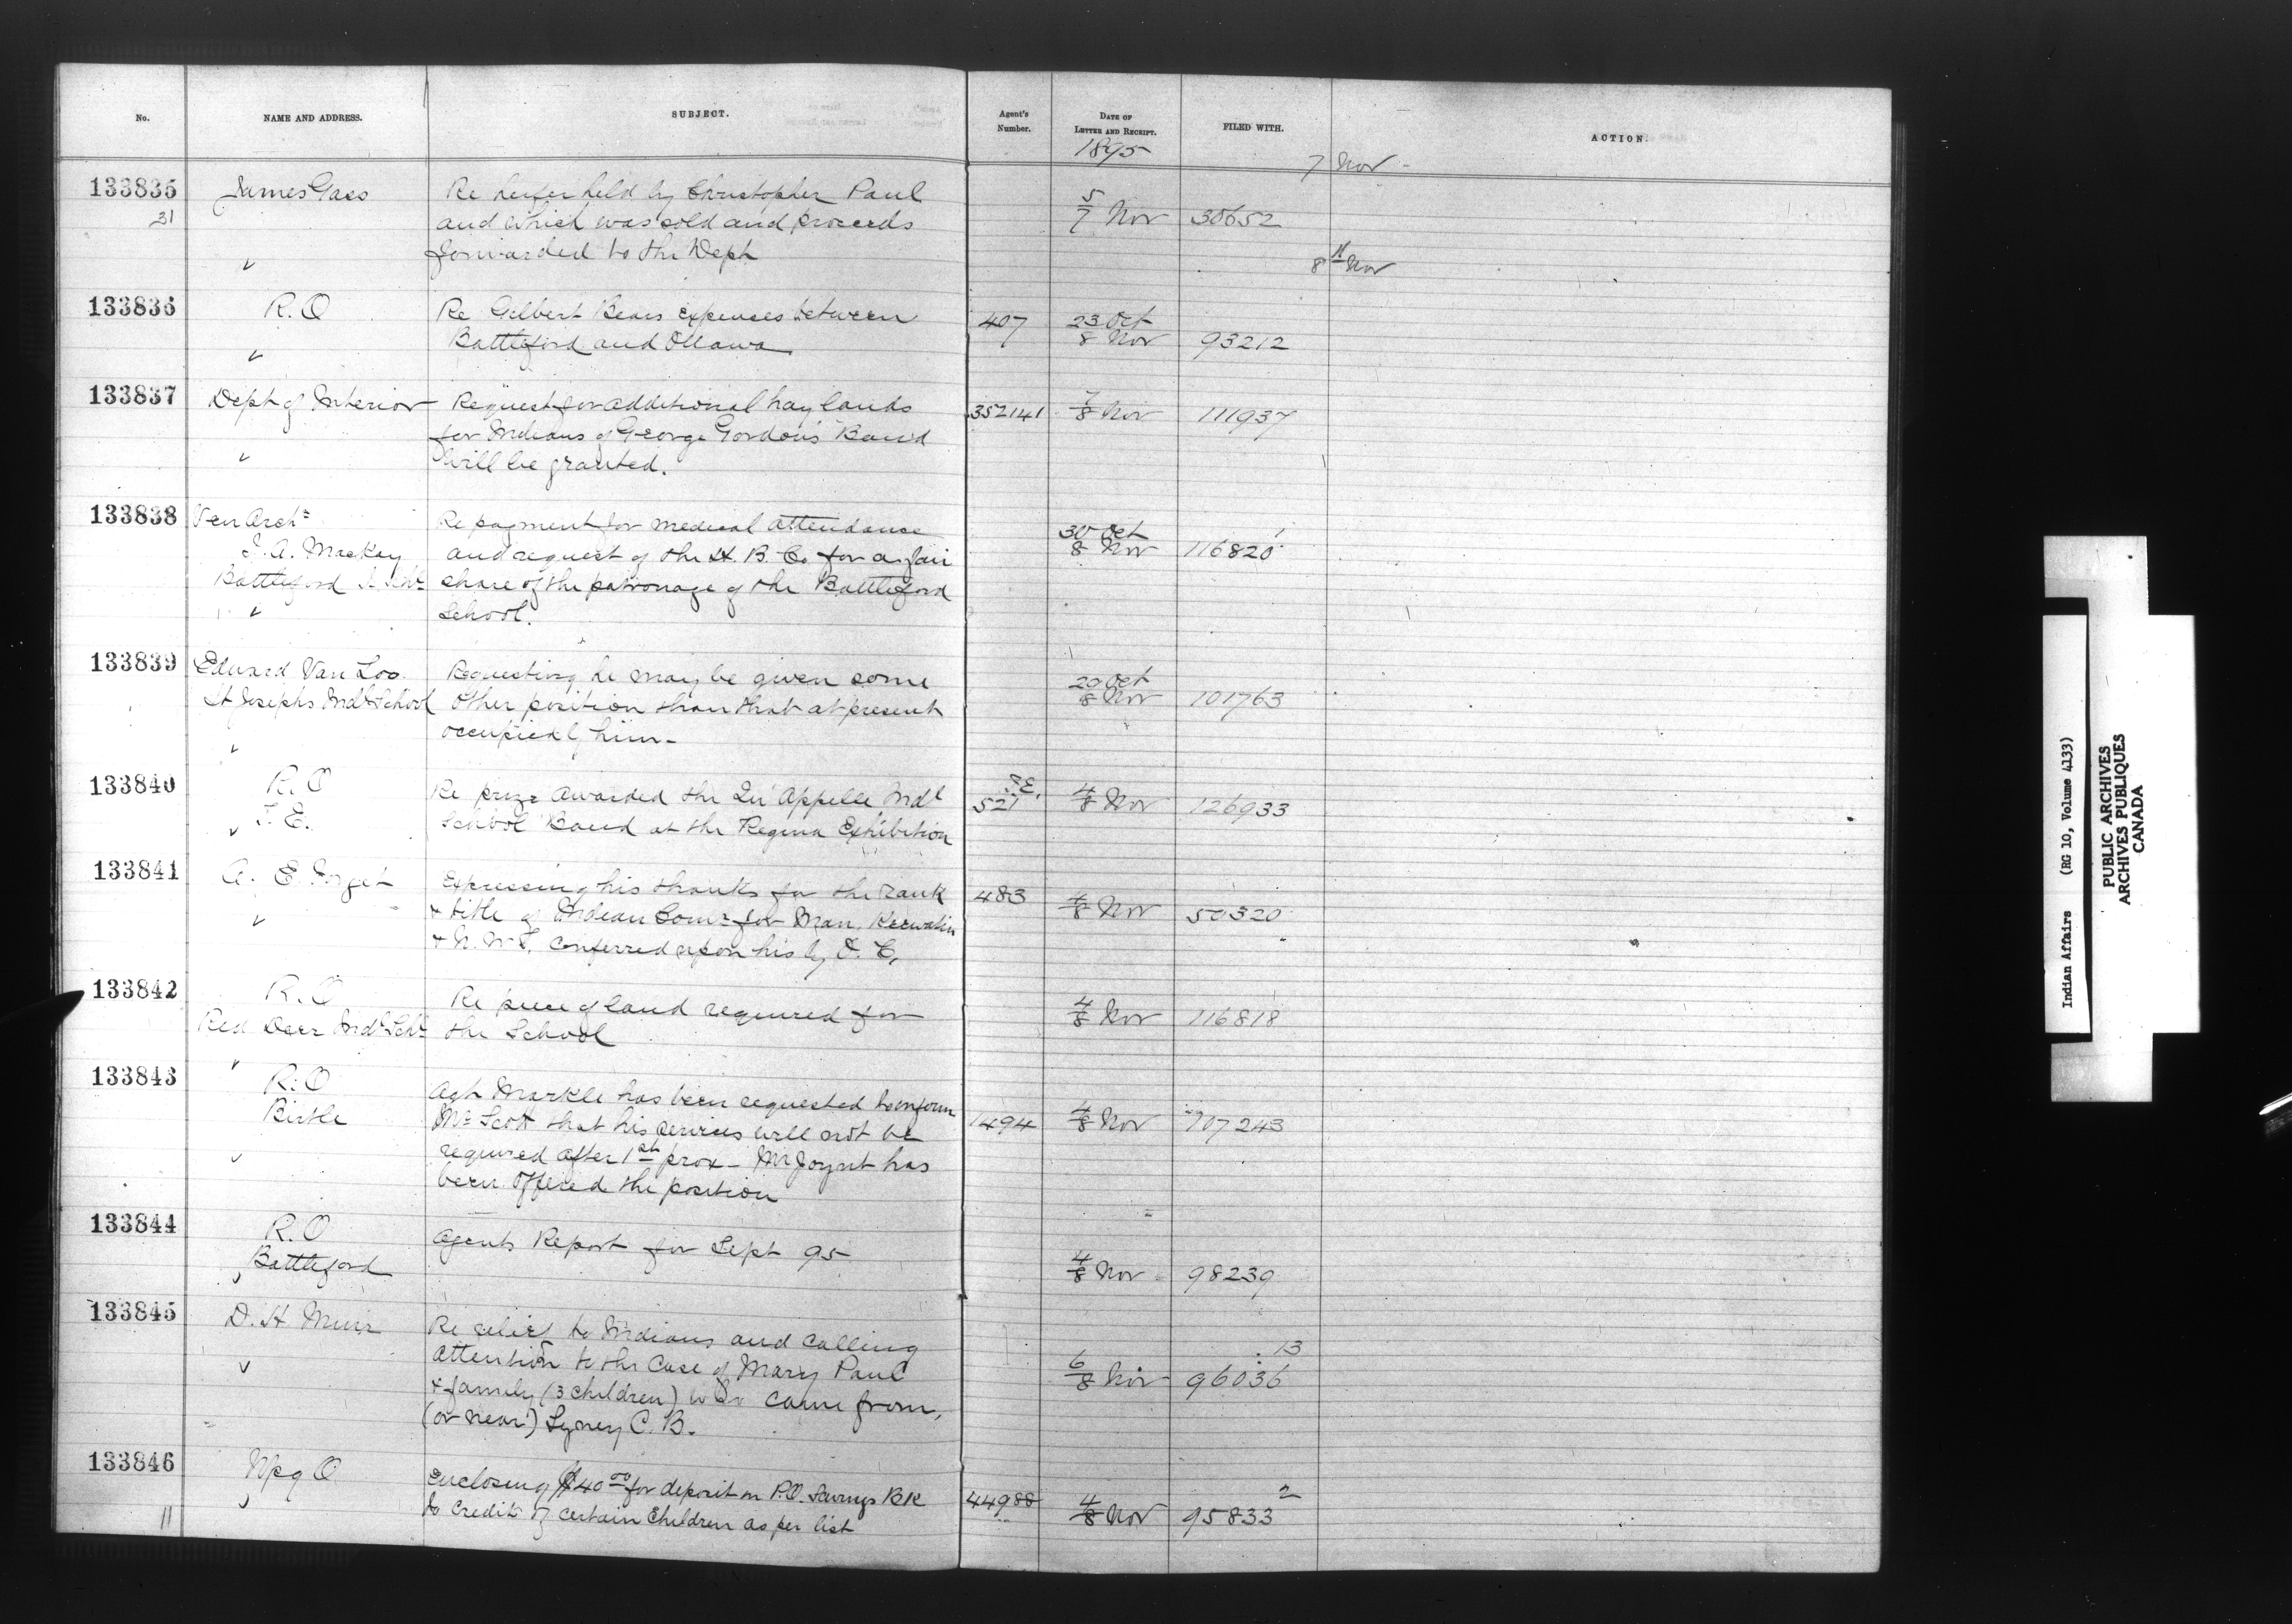 No. NAME AND ADDRESS. SUBJECT. Agent's Number. DATE OF LETTER AND RECEIPT. FILED WITH. ACTION.
1895
7 Nov -
133835 James Gass Re heifer held by Christopher Paul
31 and which was sold and proceeds 5/7 Nov 30652
forwarded to the Dept
8th Nov
133836 R.O Re Gilbert Bears expenses between 407 23 Oct
Battleford and Ottawa 8 Nov 93212
133837 Dept of Interior Request for additional hay lands 352141 7/8 Nov 111937
for Indians of George Gordon's Band
will be granted.
133838 Ven Archn Re payment for medical attendance 30 Oct
J. A. Mackay and request of the H. B. Co for a fair 8 Nov 116820
Battleford I. Schl share of the patronage of the Battleford
School.
133839 Edward Van Loo Requesting he may be given some 29 Oct
St Josephs Indl School other position than that at present 8 Nov 101763
occupied by him -
133840 R.O Re prize awarded the Qu'Appelle Indl S.E. 521 4/8 Nov 126933
School Band at the Regina Exhibition
133841 A. E. Forget Expressing his thanks for the rank 483
& title of Indian Comr for Man, Keewatin 4/8 Nov 50320
& N.W.T. conferred upon his by O. C,
133842 R.O Re piece of land required for 4/8 Nov 116818
Red Deer Indl Schl the School
133843 R.O Agt Markle has been requested to inform
Birtle Mr Scott that his services will not be 1494 4/8 Nov 107243
required after 1st prox - Mr Joynt has
been offered the position
133844 R.O Agents Report for Sept 95
Battleford 4/8 Nov 98239
133845 D. H Muir Re relief to Indians and calling
attention to the case of Mary Paul 13
& family (3 children) who came from, 6/8 Nov 96036
(or near) Syney C. B.
133846 Wpg O Enclosing $40 00 for deposit in P.O. Savings Bk 44988 2
11 to credit of certain children as per list 4/8 Nov 95833
Indian Affairs (RG 10, Volume 4133)
PUBLIC ARCHIVES
ARCHIVES PUBLIQUES
CANADA